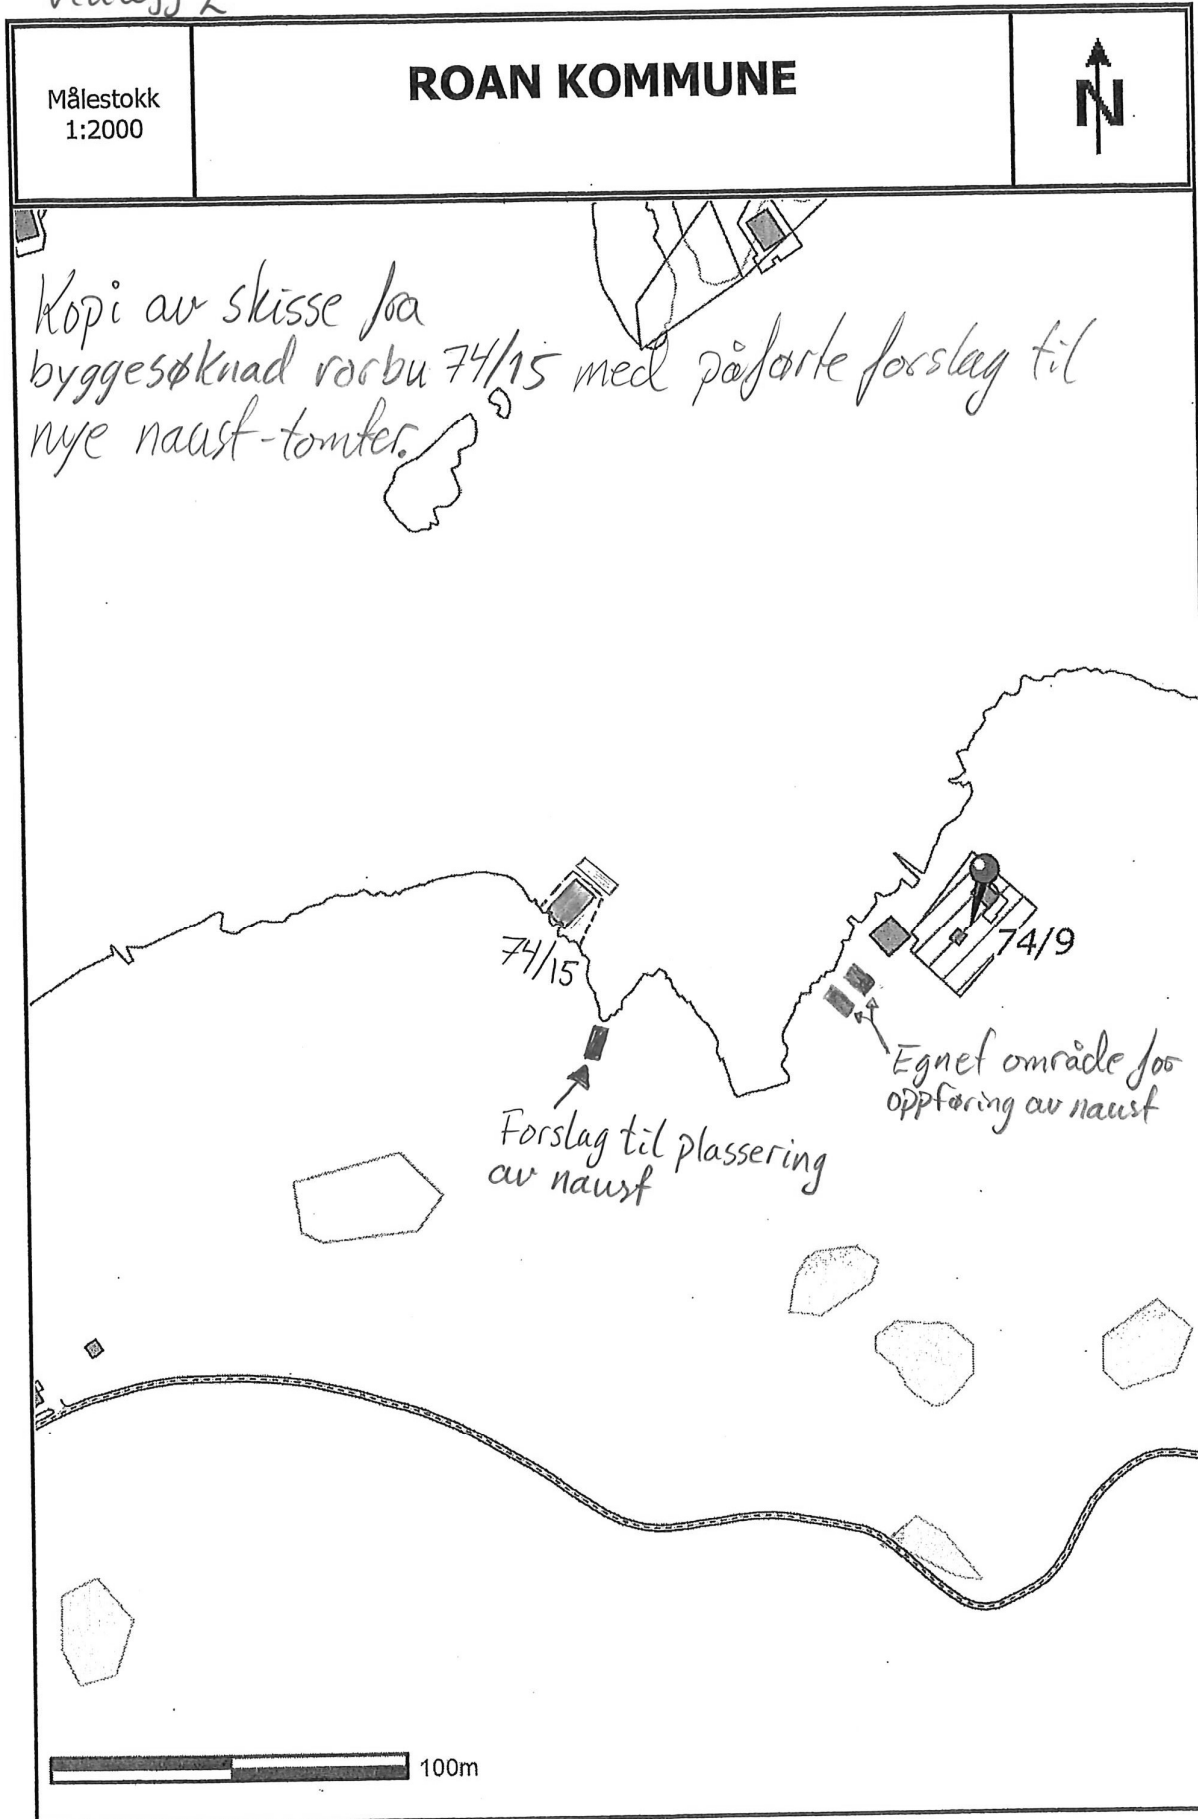 Vedlegg 2
Målestokk
1:2000
ROAN KOMMUNE
N
Kopi av skisse fra
byggesøknad rorbu 74/15 med påførte forslag til
nye naust-tomter.
74/15
74/9
Egnet område for
oppføring av naust
Forslag til plassering
av naust
100m